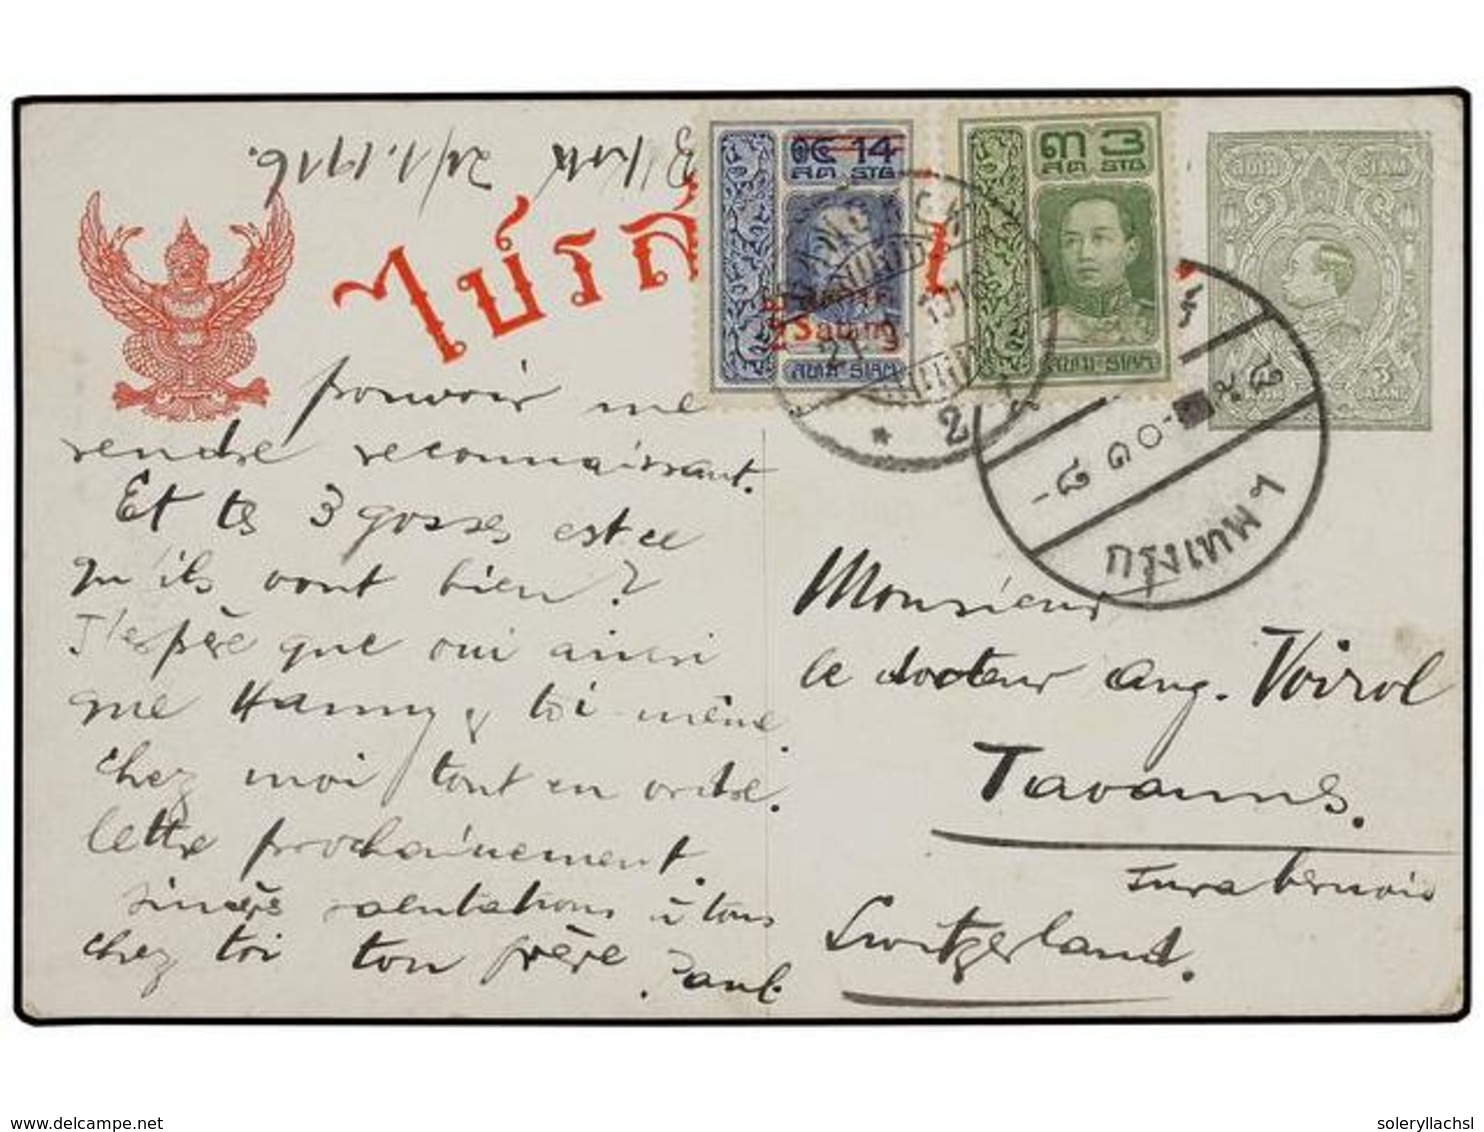 24/1.1916.
ไปรส
๑๔ 14
สต STG
2 Satang
สยาม SIAM
๓ 3
สต STG
สยาม SIAM
สยาม SIAM
2
กรุงเทพฯ
pouvoir me
rendre reconnaissant.
Et tes 3 gosses est ce
qu'ils vont bien?
J'espère que oui ainsi
que Hanny & toi-même.
Chez moi tout en ordre.
lettre prochainement.
Sincères salutations à tous
chez toi ton frère Paul
Monsieur
le docteur Aug. Voirol
Tavannes.
Jura bernois
Switzerland.
www.delcampe.net
soleryllachsl